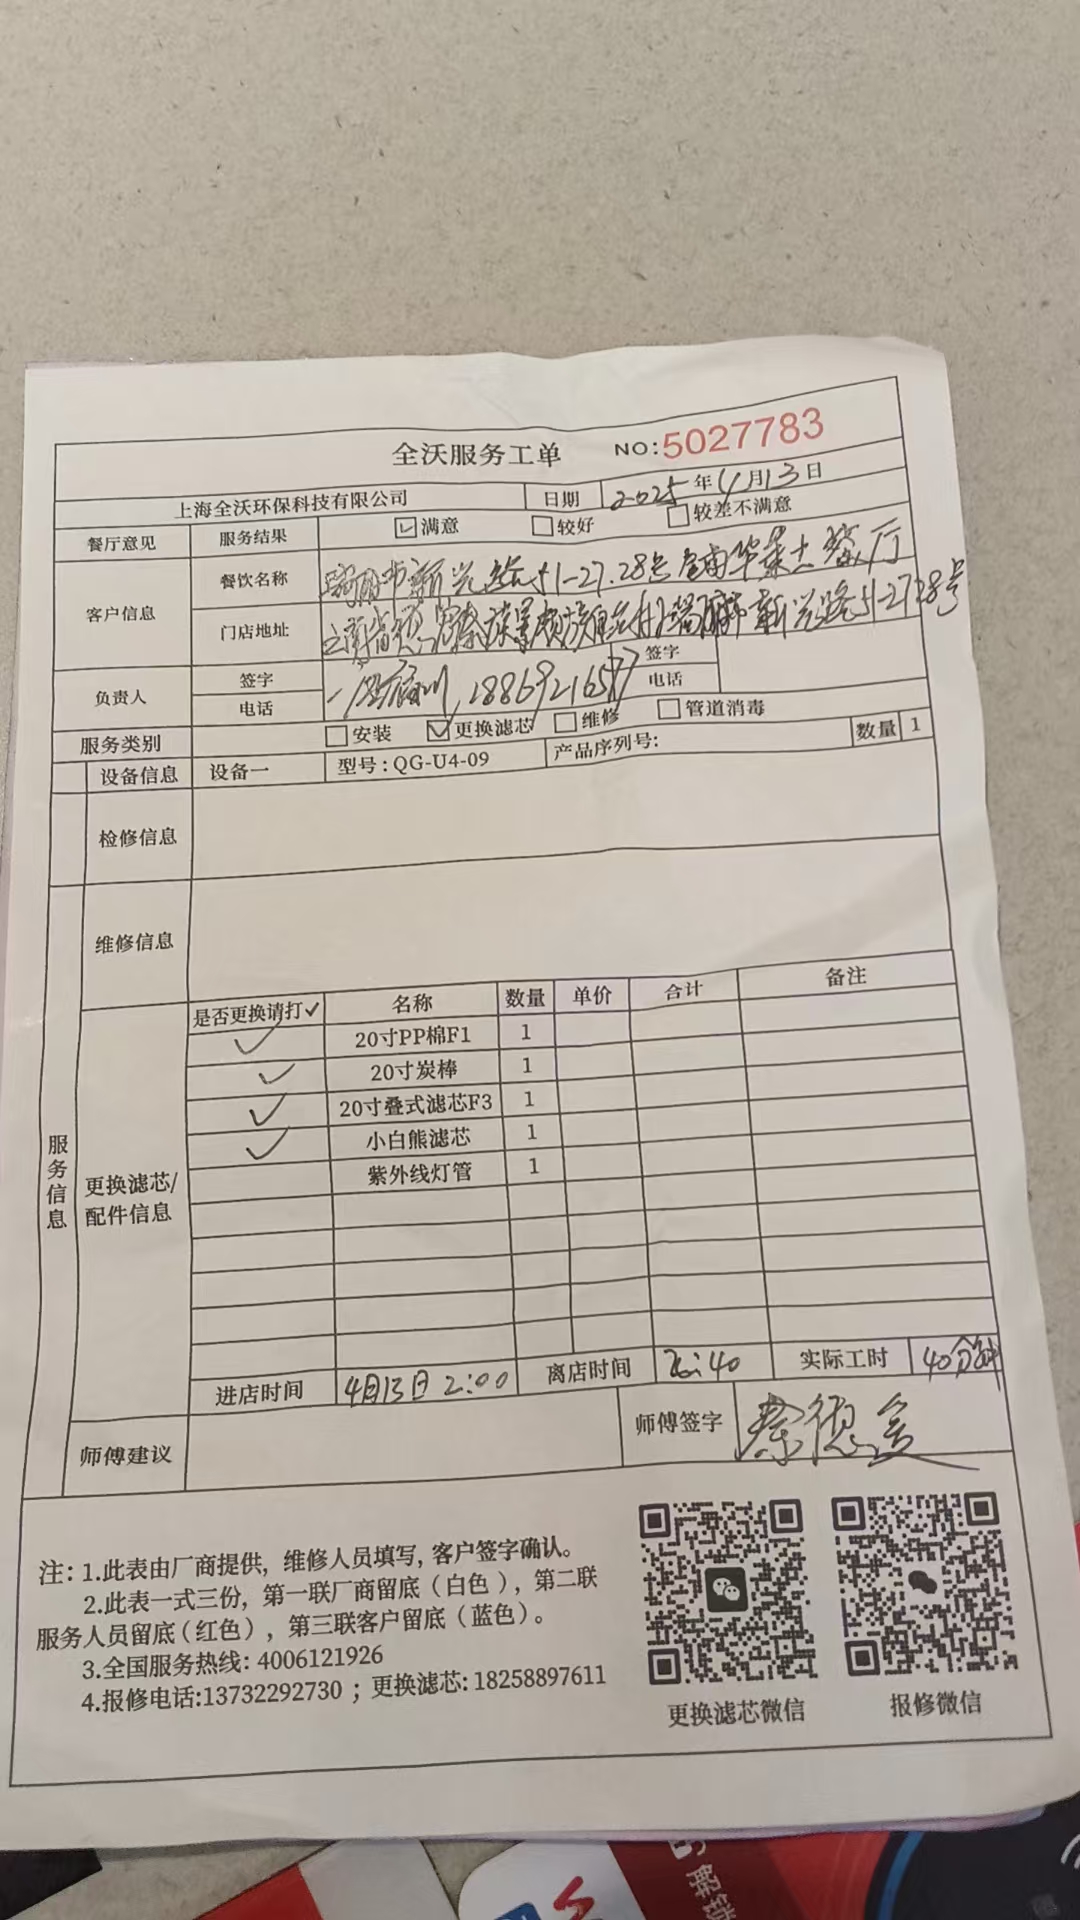 全沃服务工单 NO:5027783
上海全沃环保科技有限公司 日期 2025年4月13日
餐厅意见 服务结果 ☑满意 □较好 □较差不满意
客户信息 餐饮名称 瑞丽市新兴路51-27.28号 华莱士餐厅
门店地址 云南省德宏傣族景颇族自治州瑞丽市新兴路51-2728号
负责人 签字 签字
电话 18869216577 电话
服务类别 □安装 ☑更换滤芯 □维修 □管道消毒
设备信息 设备一 型号:QG-U4-09 产品序列号: 数量 1
检修信息
维修信息
服务信息
更换滤芯/配件信息
是否更换请打✓ 名称 数量 单价 合计 备注
✓ 20寸PP棉F1 1
✓ 20寸炭棒 1
✓ 20寸叠式滤芯F3 1
✓ 小白熊滤芯 1
紫外线灯管 1
进店时间 4月13日 2:00 离店时间 2:40 实际工时 40分钟
师傅建议 师傅签字
注: 1.此表由厂商提供, 维修人员填写, 客户签字确认。
2.此表一式三份, 第一联厂商留底（白色）, 第二联
服务人员留底（红色）, 第三联客户留底（蓝色）。
3.全国服务热线: 4006121926
4.报修电话:13732292730 ; 更换滤芯: 18258897611
更换滤芯微信 报修微信
解锁